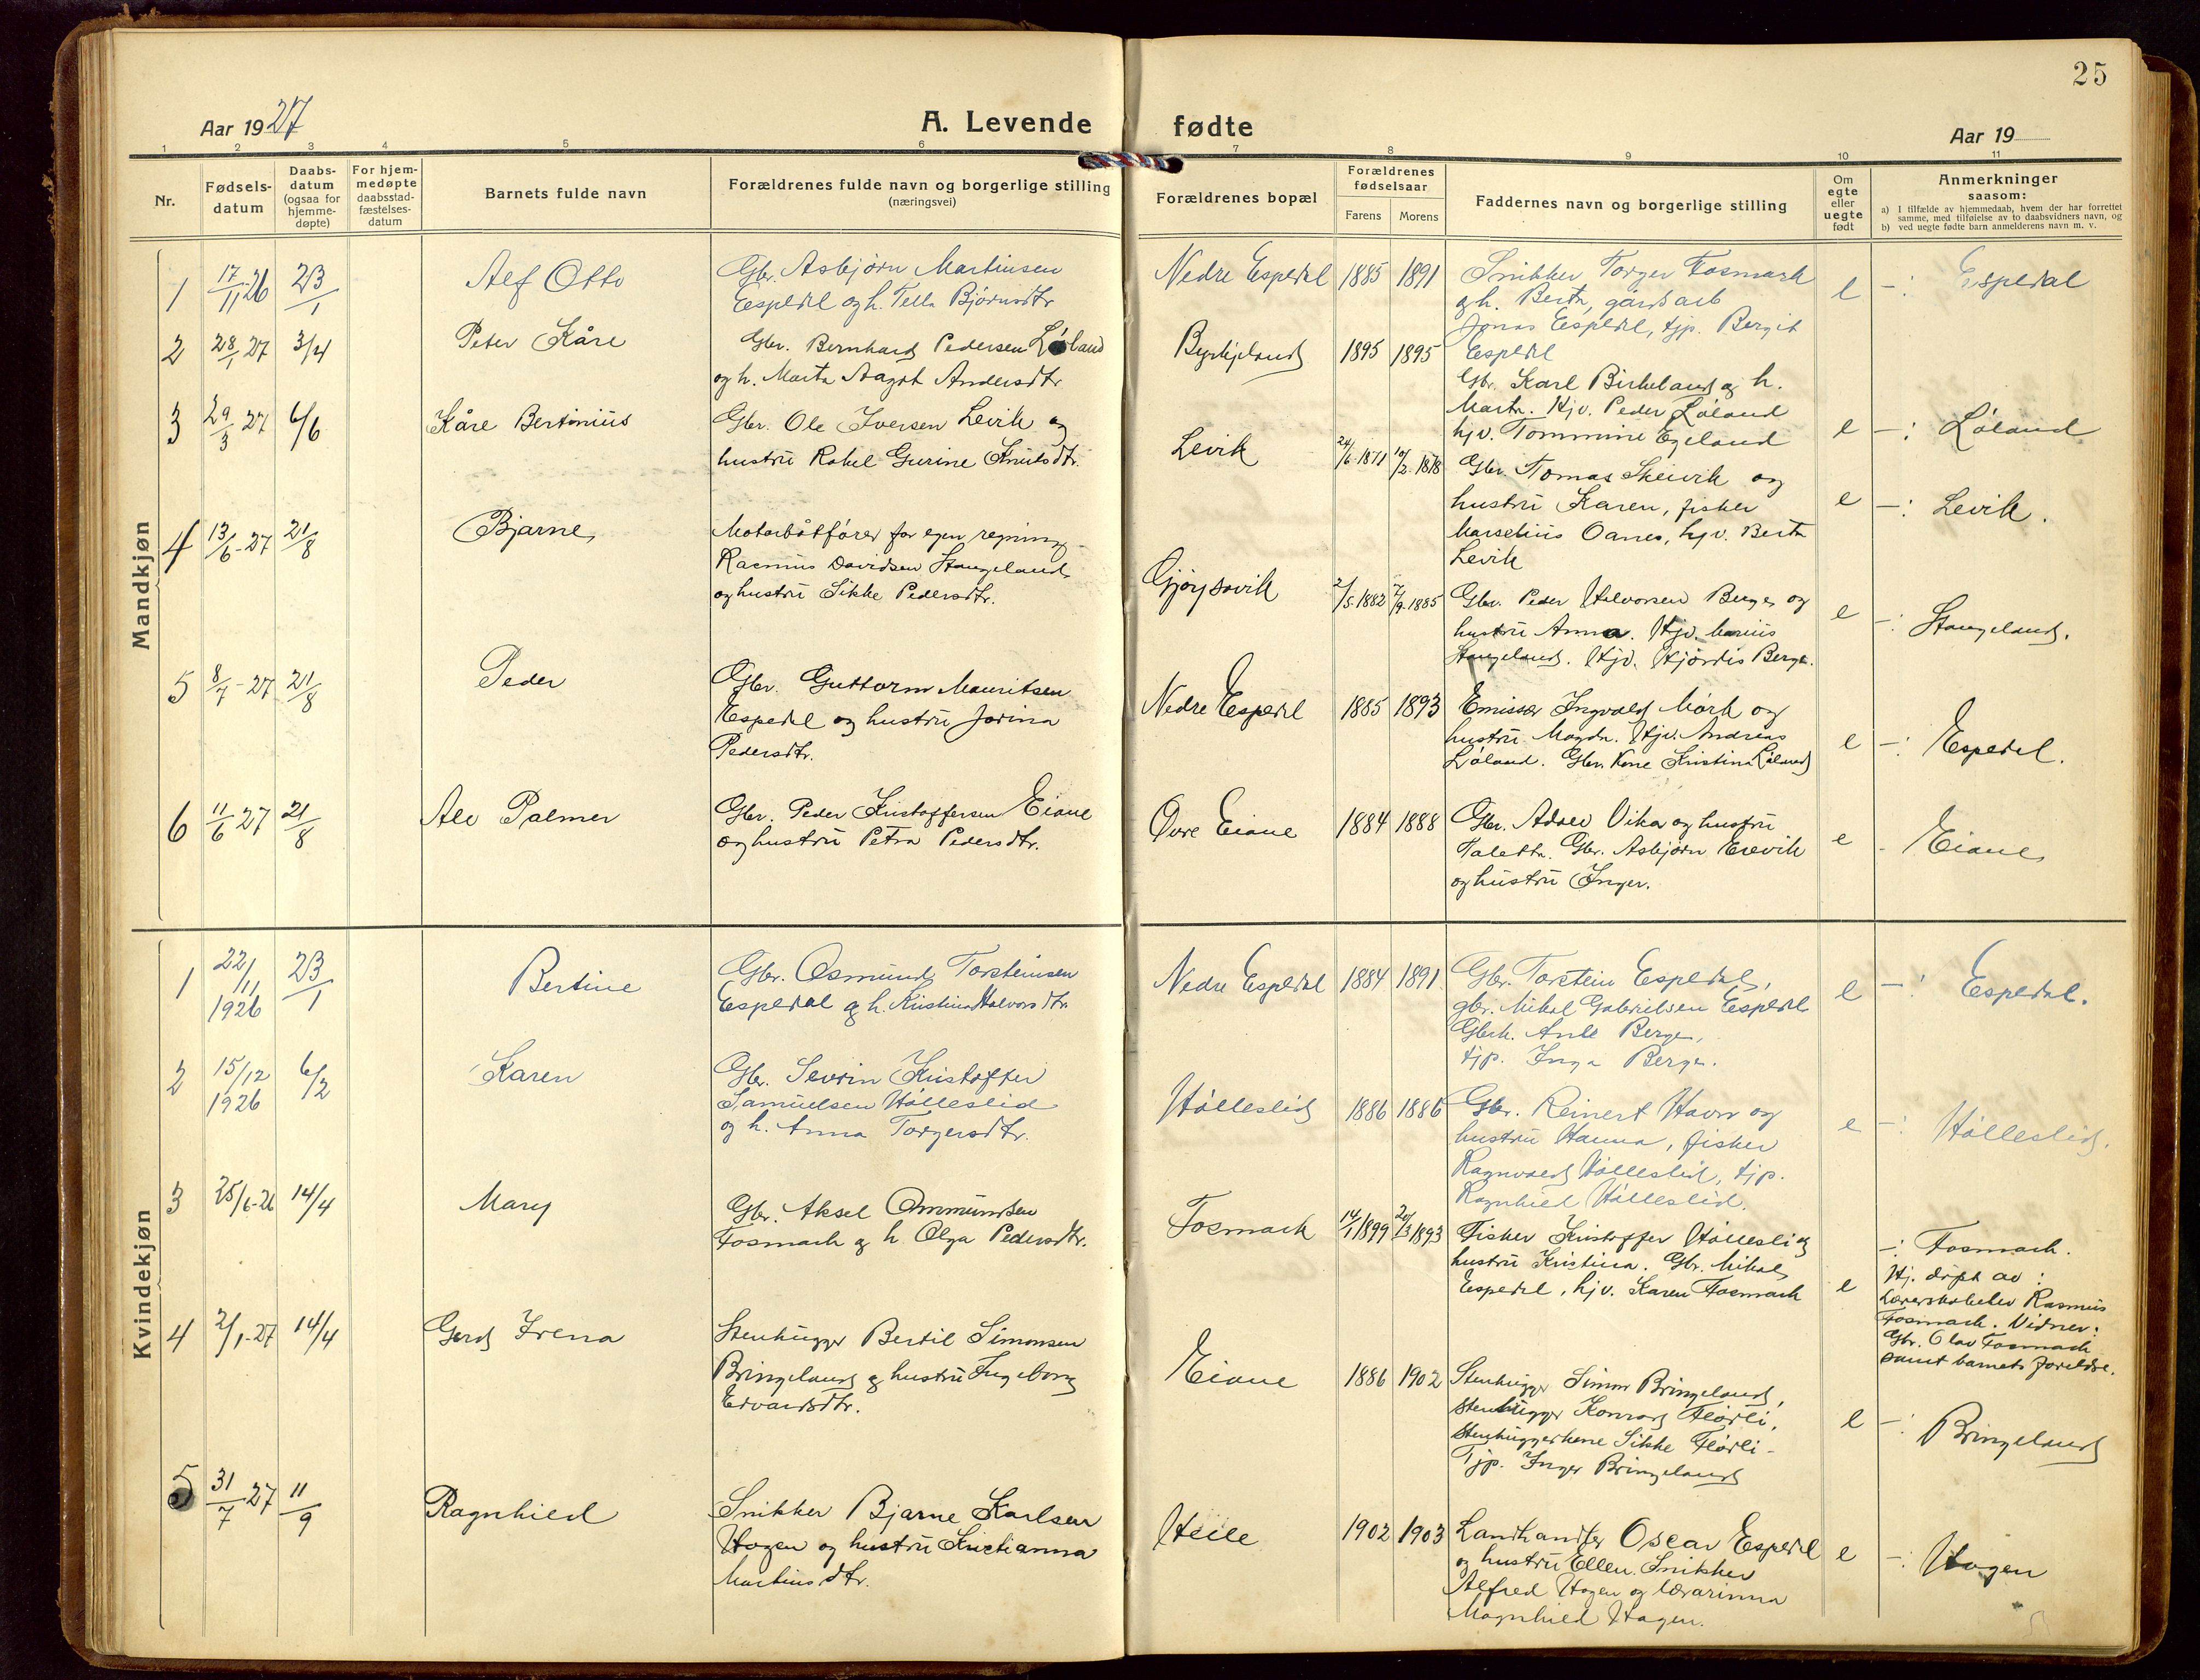 25
Aar 1927
A. Levende fødte
Aar 19
1 2 3 4 5 6 7 8 9 10 11
Nr.
Fødsels-
datum
Daabs-
datum
(ogsaa for
hjemme-
døpte)
For hjem-
medøpte
daabsstad-
fæstelses-
datum
Barnets fulde navn
Forældrenes fulde navn og borgerlige stilling
(næringsvei)
Forældrenes bopæl
Forældrenes
fødselsaar
Farens
Morens
Faddernes navn og borgerlige stilling
Om
egte
eller
uegte
født
Anmerkninger
saasom:
a) I tilfælde av hjemmedaab, hvem der har forrettet
samme, med tilføielse av to daabsvidners navn, og
b) ved uegte fødte barn anmelderens navn m. v.
Mandkjøn
1 17/11 26 23/1 Alf Otto
Gbr. Asbjørn Martinsen
Espedal og h. Tella Bjørnsdtr
Nedre Espedal 1885 1891
Snikker Torger Fosmark
og h. Berta, gardsarb
Jonas Espedal, tjp. Bergit
Espedal
e -:- Espedal
2 28/1 27 3/4 Peter Kåre
Gbr. Bernhard Pedersen Løland
og h. Marta Aagot Andersdtr
Byrkjeland 1895 1895
Gbr. Karl Birkeland og h.
Marta. Hjv. Peder Løland
hjv. Tommine Egeland
e -:- Løland
3 29/3 27 6/6 Kåre Bertinius
Gbr. Ole Iversen Levik og
hustru Rakel Gurine Knutsdtr.
Levik 24/6-1871 10/2-1878
Gbr. Tomas Skeivik og
hustru Karen, fisker
Marselius Oanes, hjv. Berta
Levik
e -:- Levik.
4 13/6-27 21/8 Bjarne
Motorbåtfører for egen regning
Rasmus Davidsen Stangeland
og hustru Sikke Pedersdtr.
Gjøysavik 2/5-1882 7/9-1885
Gbr. Peder Halvorsen Berge og
hustru Anna. Hjv. Marius
Stangeland. Hjv. Hjørdis Berge.
e -:- Stangeland.
5 8/7-27 21/8 Peder
Gbr. Guttorm Mauritsen
Espedal og hustru Jorina
Pedersdtr.
Nedre Espedal 1885 1893
Emissær Ingvald Mørk og
hustru Magda. Hjv. Andreas
Løland. Gbr. Kone Kristina Løland
e -:- Espedal.
6 11/6 27 21/8 Alv Palmer
Gbr. Peder Kristoffersen Eiane
og hustru Petra Pedersdtr.
Øvre Eiane 1884 1888
Gbr. Adolv Vika og hustru
Taletta. Gbr. Asbjørn Erevik
og hustru Inger.
e - Eiane
Kvindekjøn
1 22/11 1926 23/1 Bertine
Gbr. Osmund Torsteinsen
Espedal og h. Kristina Halvorsdtr.
Nedre Espedal 1884 1891
Gbr. Torstein Espedal,
gbr. Mikal Gabrielsen Espedal
Gbrk. Anle Berge,
tjp. Inga Berge.
e -:- Espedal.
2 15/12 1926 6/2 Karen
Gbr. Sevrin Kristoffer
Samuelsen Hølleslid
og h. Anna Torgersdtr.
Hølleslid 1886 1886
Gbr. Reinert Havn og
hustru Hanna, fisker
Ragnvald Hølleslid, tjp.
Ragnhild Hølleslid.
e -:- Hølleslid.
3 25/6-26 14/4 Mary
Gbr. Aksel Ommundsen
Fosmark og h. Olga Pedersdtr.
Fosmark 14/1 1899 20/3 1893
Fisker Kristoffer Hølleslid og
hustru Kristina. Gbr. Mikal
Espedal, hjv. Karen Fosmark
e -:- Fosmark.
Hj. døpt av:
Lærerskoleelev Rasmus
Fosmark. Vidner:
Gbr. Olav Fosmark
samt barnets foreldre.
4 2/1-27 14/4 Gerd Irena
Stenhugger Bertil Simonsen
Bringeland og hustru Ingeborg
Edvardsdtr.
Eiane 1886 1902
Stenhugger Simon Bringeland,
Stenhugger Konrad Flørli,
Stenhuggerkone Sikke Flørli -
Tjp. Inger Bringeland
e -:- Bringeland
5 31/7 27 11/9 Ragnhild
Snikker Bjarne Karlsen
Hagen og hustru Kristianna
Martinsdtr.
Helle 1902 1903
Landhandler Oscar Espedal
og hustru Ellen. Snikker
Alfred Hagen og lærarinna
Magnhild Hagen.
e -:- Hagen